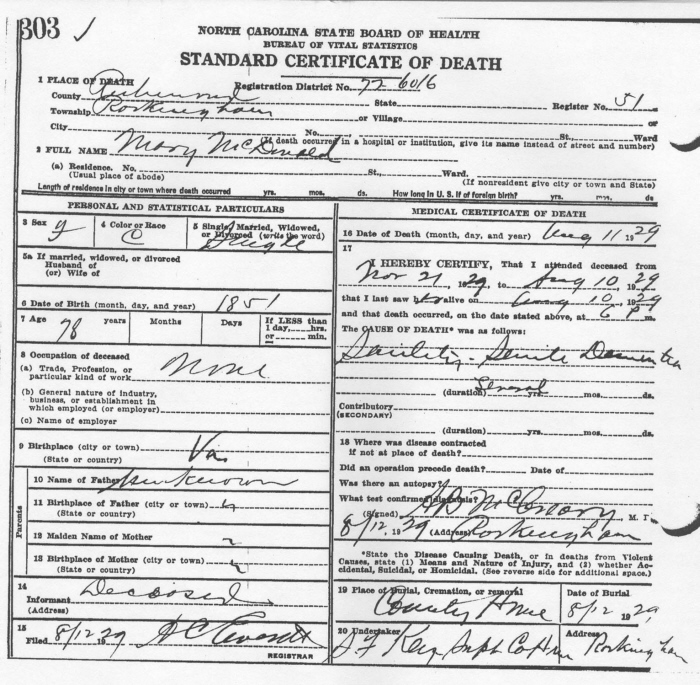 303 ✓
NORTH CAROLINA STATE BOARD OF HEALTH
BUREAU OF VITAL STATISTICS
STANDARD CERTIFICATE OF DEATH
1 PLACE OF DEATH Registration District No. 77-6016
County State Register No. 51
Township Rockingham or Village or
City No. St., Ward
(If death occurred in a hospital or institution, give its name instead of street and number)
2 FULL NAME Mary McDonald
(a) Residence. No. St., Ward.
(Usual place of abode) (If nonresident give city or town and State)
Length of residence in city or town where death occurred yrs. mos. ds. How long in U. S. if of foreign birth? yrs. mos. ds
PERSONAL AND STATISTICAL PARTICULARS
3 Sex 4 Color or Race C 5 Single, Married, Widowed, or Divorced (write the word) Single
5a If married, widowed, or divorced
Husband of
(or) Wife of
6 Date of Birth (month, day, and year) 1851
7 Age 78 years Months Days If LESS than 1 day, hrs. or min.
8 Occupation of deceased
(a) Trade, Profession, or particular kind of work None
(b) General nature of industry, business, or establishment in which employed (or employer)
(c) Name of employer
9 Birthplace (city or town) Va
(State or country)
Parents
10 Name of Father unknown
11 Birthplace of Father (city or town) "
(State or country)
12 Maiden Name of Mother "
13 Birthplace of Mother (city or town) "
(State or country)
14
Informant
(Address)
15
Filed 8/12 1929
REGISTRAR
MEDICAL CERTIFICATE OF DEATH
16 Date of Death (month, day, and year) Aug 11 1929
17
I HEREBY CERTIFY, That I attended deceased from
Nov 21, 1929, to Aug 10, 1929
that I last saw her alive on Aug 10, 1929
and that death occurred, on the date stated above, at 6 P m.
The CAUSE OF DEATH* was as follows:
Senility - Senile Dementia
(duration) Several yrs. mos. ds.
Contributory
(SECONDARY)
(duration) yrs. mos. ds.
18 Where was disease contracted
if not at place of death?
Did an operation precede death? Date of
Was there an autopsy?
What test confirmed diagnosis?
(Signed) M. D.
8/12, 1929 (Address) Rockingham
*State the Disease Causing Death, or in deaths from Violent
Causes, state (1) Means and Nature of Injury, and (2) whether Ac-
cidental, Suicidal, or Homicidal. (See reverse side for additional space.)
19 Place of Burial, Cremation, or removal Date of Burial
County Home 8/12 1929
20 Undertaker Address
Rockingham